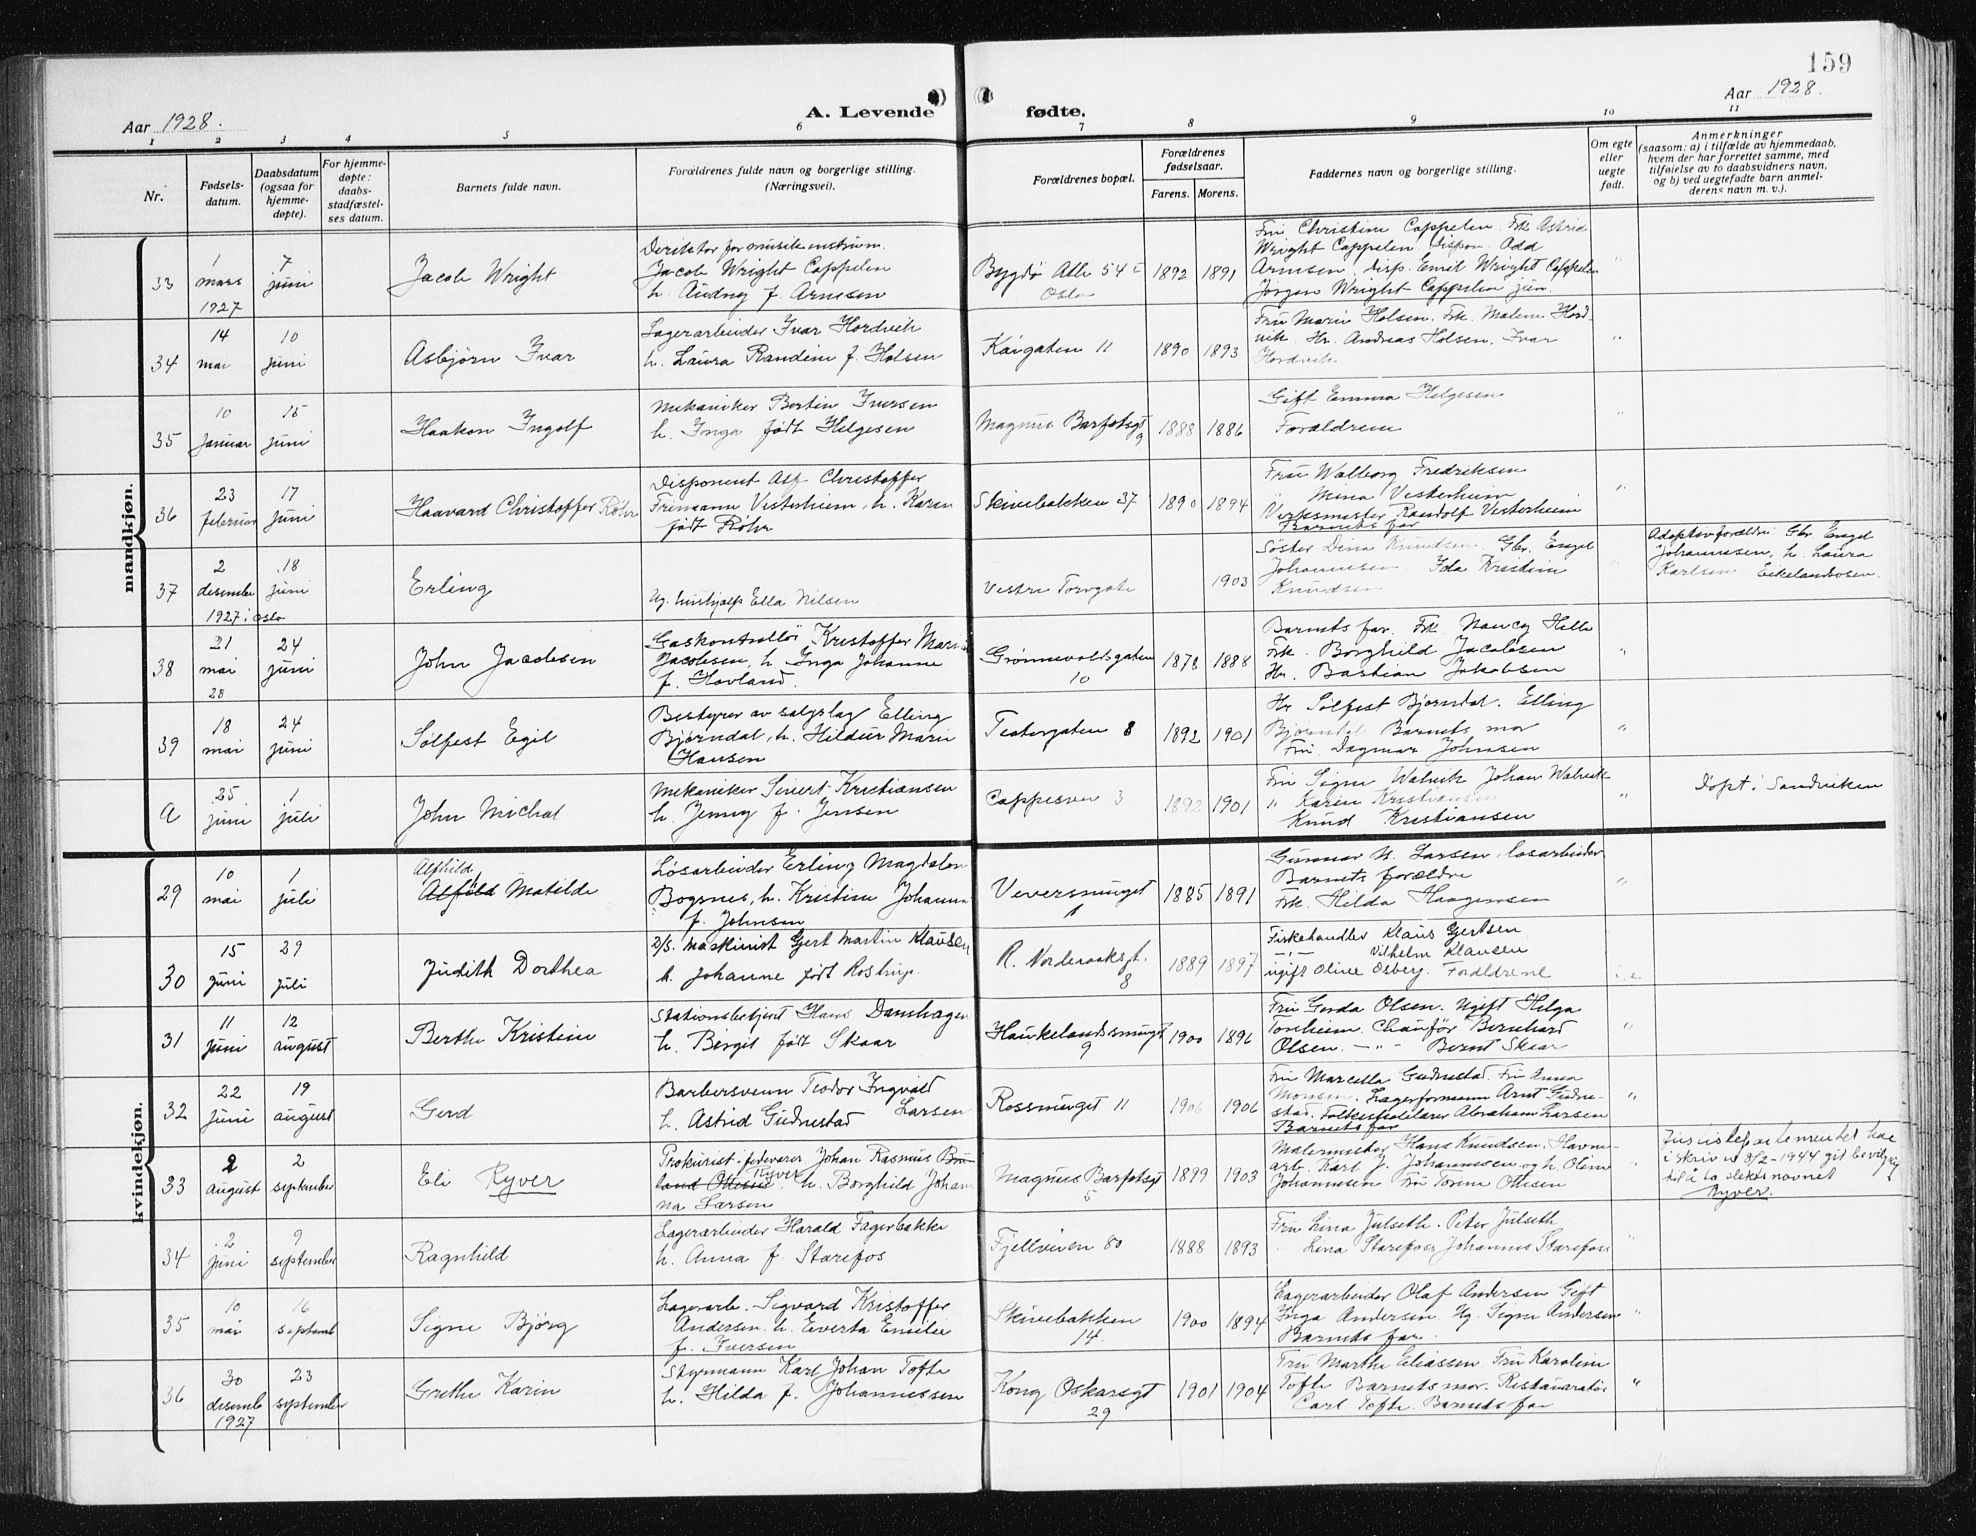 159
Aar 1928.
A. Levende fødte.
Aar 1928.
1 2 3 4 5 6 7 8 9 10 11
Nr.
Fødsels-
datum.
Daabsdatum
(ogsaa for
hjemme-
døpte).
For hjemme-
døpte:
daabs-
stadfæstel-
ses datum.
Barnets fulde navn.
Forældrenes fulde navn og borgerlige stilling.
(Næringsvei).
Forældrenes bopæl.
Forældrenes
fødselsaar.
Farens. Morens.
Faddernes navn og borgerlige stilling.
Om egte
eller
uegte
født.
Anmerkninger
(saasom: a) i tilfælde av hjemmedaab,
hvem der har forrettet samme, med
tilføielse av to daabsvidners navn,
og b) ved uegtefødte barn anmel-
derens navn m. v.).
mandkjøn.
33
1
mars
1927
7
juni
Jacob Wright
Jacob Wright Cappelen
h. Audny f. Arnesen
Bygdø Alle 54
Oslo
1892 1891
Fru Christine Cappelen. Frk Astrid
Wright Cappelen. Dispon. Odd
Arnesen, Disp. Emil Wright Cappelen
Jørgen Wright Cappelen jun.
"
34
14
mai
10
juni
Asbjørn Ivar
Lagerarbeider Ivar Hordvik
h. Laura Randine f. Holsen
Kaigaten 11
1890 1893
Fru Marie Holsen. Frk. Malene Hord-
vik. Hr. Andreas Holsen. Ivar
Hordvik.
"
35
10
januar
15
juni
Haakon Ingolf
Mekaniker Bertin Iversen
h. Inga født Helgesen
Magnus Barfotsgt
9
1888 1886
Gift Emma Helgesen
Forældrene
"
36
23
februar
17
juni
Haavard Christoffer Röhr
Disponent Alf Christoffer
Frimann Vesterheim, h. Karin
født Röhr
Skivebakken 37
1890 1894
Frau Walborg Fredriksen
" Mina Vesterheim
Verksmester Randolf Vesterheim
Barnets far
"
37
2
desember
1927 i Oslo
18
juni
Erling
Ug. hushjælp Ella Nilsen
Vestre Torvgate
1903
Søster Dina Knudsen. Gbr. Engel
Johannesen. Ida Kristine
Knudsen
"
Adoptivforældre: Gbr. Engel
Johannesen, h. Laura
Karlsen. Eikelandsosen.
38
21
mai
28
24
juni
John Jacobsen
Gaskontrollør Kristoffer Marius
Jacobsen, h. Inga Johanne
f. Hovland.
Grønnevoldsgaten
10
1878 1888
Barnets far. Frk. Nancy Hille
Frk. Borghild Jacobsen
Hr. Bastian Jakobsen
"
39
18
mai
24
juni
Sølfest Egil
Bestyrer av salgslag Elling
Bjørndal, h. Hildur Marie
Hansen
Teatergaten 8
1892 1901
Hr Sølfest Bjørndal. Elling
Bjørndal Barnets mor
Fru Dagmar Johnsen
"
a
25
juni
1
juli
John Michal
Mekaniker Sivert Kristiansen
h. Jenny f. Jensen
Cappesvei 3
1892 1901
Fru Signe Walvik Johan Walvik
" Karin Kristiansen
Knud Kristiansen
"
Døpt i Sandviken
kvindekjøn.
29
10
mai
1
juli
Alfhild
Alfild Matilde
Løsarbeider Erling Magdalon
Bognes, h. Kristine Johanna
f. Johnsen
Veversmuget
1
1885 1891
Gunnar N. Larsen, løsarbeider
Barnets forældre
Frk. Hilda Haagensen
"
30
15
juni
29
juli
Judith Dorthea
D/S. maskinist Gert Martin Klausen
h. Johanne født Rostrup
R. Nordraaksgt.
8
1889 1897
Fiskehandler Klaus Gertsen
-"- Vilhelm Klausen
ugift Olive Osberg. Forældrene
31
11
juni
12
august
Berthe Kristine
Stationsbetjent Hans Danshagen
h. Bergit født Skaar
Haukelandssmuget
9
1900 1896
Fru Gerda Olsen. Ugift Helga
Toreheim. Chaufför Bernhard
Olsen. -"- Bernt Skaar
"
32
22
juni
19
august
Gerd
Barbersvenn Teodor Ingvald
Larsen
h. Astrid Gudnestad
Rossmuget 11
1906 1906
Fru Marcella Gudnestad. Fru Anna
Monsen. Lagerformann Arnt Gudne-
stad. Abraham Larsen
Barnets far
"
33
2
august
2
september
Eli Ryver
Prokurist i fedevarer Johan Rasmus Bru-
land Ottesen Ryver h. Borghild Johan-
na Larsen
Magnus Barfotsgt
5
1899 1903
Malermester Hans Knudsen. Havne-
arb. Karl J. Johannessen og h. Oline
Johannesen. Fru Torine Ottesen
"
Justisdepartementet har
i skriv av 8/2-1944 git bevilgning
til å ta slektsnavnet
Ryver.
34
2
juni
9
september
Ragnhild
Lagerarbeider Harald Fagerbakke
h. Anna f Starefos
Fjellveien 80
1888 1893
Fru Lina Julseth. Peter Julseth
" Lina Starefoss Johannes Starefoss
"
35
10
mai
16
septemb
Signe Bjørg
Lagerarb. Sigvard Kristoffer
Andersen h. Everta Emilie
f. Iversen
Skivebakken
14.
1900 1894
Lagerarbeider Olaf Andersen Gift
Inga Andersen Ug. Signe Andersen
Barnets far.
"
36
30
desemb
1927
23
september
Grethe Karin
Styrmann Karl Johan Tofte
h. Hilda f. Johannessen
Kong Oskarsgt
29
1901 1904
Fru Marthe Eliassen. Fru Karoline
Tofte Barnets mor. Restauratør
Carl Tofte. Barnets far
"